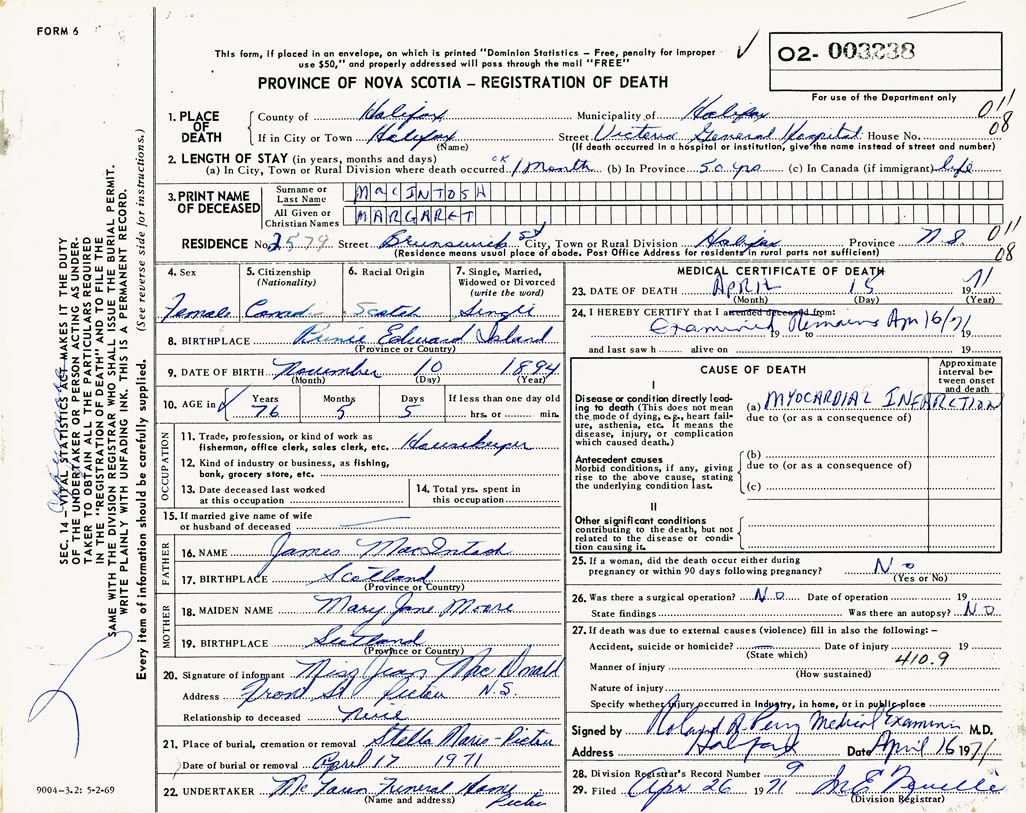 FORM 6
This form, if placed in an envelope, on which is printed "Dominion Statistics – Free, penalty for improper
use $50," and properly addressed will pass through the mail "FREE"
✓
O2- 003238
PROVINCE OF NOVA SCOTIA – REGISTRATION OF DEATH
For use of the Department only
1. PLACE OF DEATH
County of Halifax Municipality of Halifax 011
If in City or Town Halifax Street Victoria General Hospital House No. 08
(Name) (If death occurred in a hospital or institution, give the name instead of street and number)
2. LENGTH OF STAY (in years, months and days)
(a) In City, Town or Rural Division where death occurred OK 1 Month (b) In Province 50 yrs (c) In Canada (if immigrant) life
3. PRINT NAME OF DECEASED
Surname or Last Name MacINTOSH
All Given or Christian Names MARGARET
RESIDENCE No. 2579 Street Brunswick St City, Town or Rural Division Halifax Province N.S. 011
(Residence means usual place of abode. Post Office Address for residents in rural parts not sufficient) 08
4. Sex 5. Citizenship (Nationality) 6. Racial Origin 7. Single, Married, Widowed or Divorced (write the word)
Female Canadian Scotch Single
8. BIRTHPLACE Prince Edward Island
(Province or Country)
9. DATE OF BIRTH November 10 1894
(Month) (Day) (Year)
10. AGE in Years Months Days If less than one day old
76 5 5 hrs. or min.
OCCUPATION
11. Trade, profession, or kind of work as
fisherman, office clerk, sales clerk, etc. Housekeeper
12. Kind of industry or business, as fishing,
bank, grocery store, etc.
13. Date deceased last worked
at this occupation
14. Total yrs. spent in
this occupation
15. If married give name of wife
or husband of deceased
FATHER
16. NAME James MacIntosh
17. BIRTHPLACE Scotland
(Province or Country)
MOTHER
18. MAIDEN NAME Mary Jane Moore
19. BIRTHPLACE Scotland
(Province or Country)
20. Signature of informant Miss Jean MacDonald
Address Front St Pictou N.S.
Relationship to deceased Niece
21. Place of burial, cremation or removal Stella Maris - Pictou
Date of burial or removal April 17 1971
22. UNDERTAKER McLaren Funeral Home
(Name and address) Pictou
MEDICAL CERTIFICATE OF DEATH
23. DATE OF DEATH APRIL 15 1971
(Month) (Day) (Year)
24. I HEREBY CERTIFY that I attended deceased from:
Examined Remains Apr 16/71
19 to 19
and last saw h alive on 19
CAUSE OF DEATH
Approximate interval between onset and death
I
Disease or condition directly leading to death (This does not mean the mode of dying, e.g., heart failure, asthenia, etc. It means the disease, injury, or complication which caused death.)
(a) MYOCARDIAL INFARCTION
due to (or as a consequence of)
Antecedent causes
Morbid conditions, if any, giving rise to the above cause, stating the underlying condition last.
(b)
due to (or as a consequence of)
(c)
II
Other significant conditions
contributing to the death, but not related to the disease or condition causing it.
25. If a woman, did the death occur either during
pregnancy or within 90 days following pregnancy? No
(Yes or No)
26. Was there a surgical operation? NO Date of operation 19
State findings Was there an autopsy? NO
27. If death was due to external causes (violence) fill in also the following:–
Accident, suicide or homicide? Date of injury 19
(State which)
410.9
Manner of injury
(How sustained)
Nature of injury
Specify whether injury occurred in industry, in home, or in public place
Signed by Roland A Perry Medical Examiner M.D.
Address Halifax Date April 16 1971
28. Division Registrar's Record Number 9
29. Filed Apr 26 1971
(Division Registrar)
SEC. 14 – VITAL STATISTICS ACT MAKES IT THE DUTY
OF THE UNDERTAKER OR PERSON ACTING AS UNDER-
TAKER TO OBTAIN ALL THE PARTICULARS REQUIRED
IN THE "REGISTRATION OF DEATH" AND TO FILE THE
SAME WITH THE DIVISION REGISTRAR WHO SHALL ISSUE THE BURIAL PERMIT.
WRITE PLAINLY WITH UNFADING INK. THIS IS A PERMANENT RECORD.
Every item of information should be carefully supplied. (See reverse side for instructions.)
9004-3.2: 5-2-69